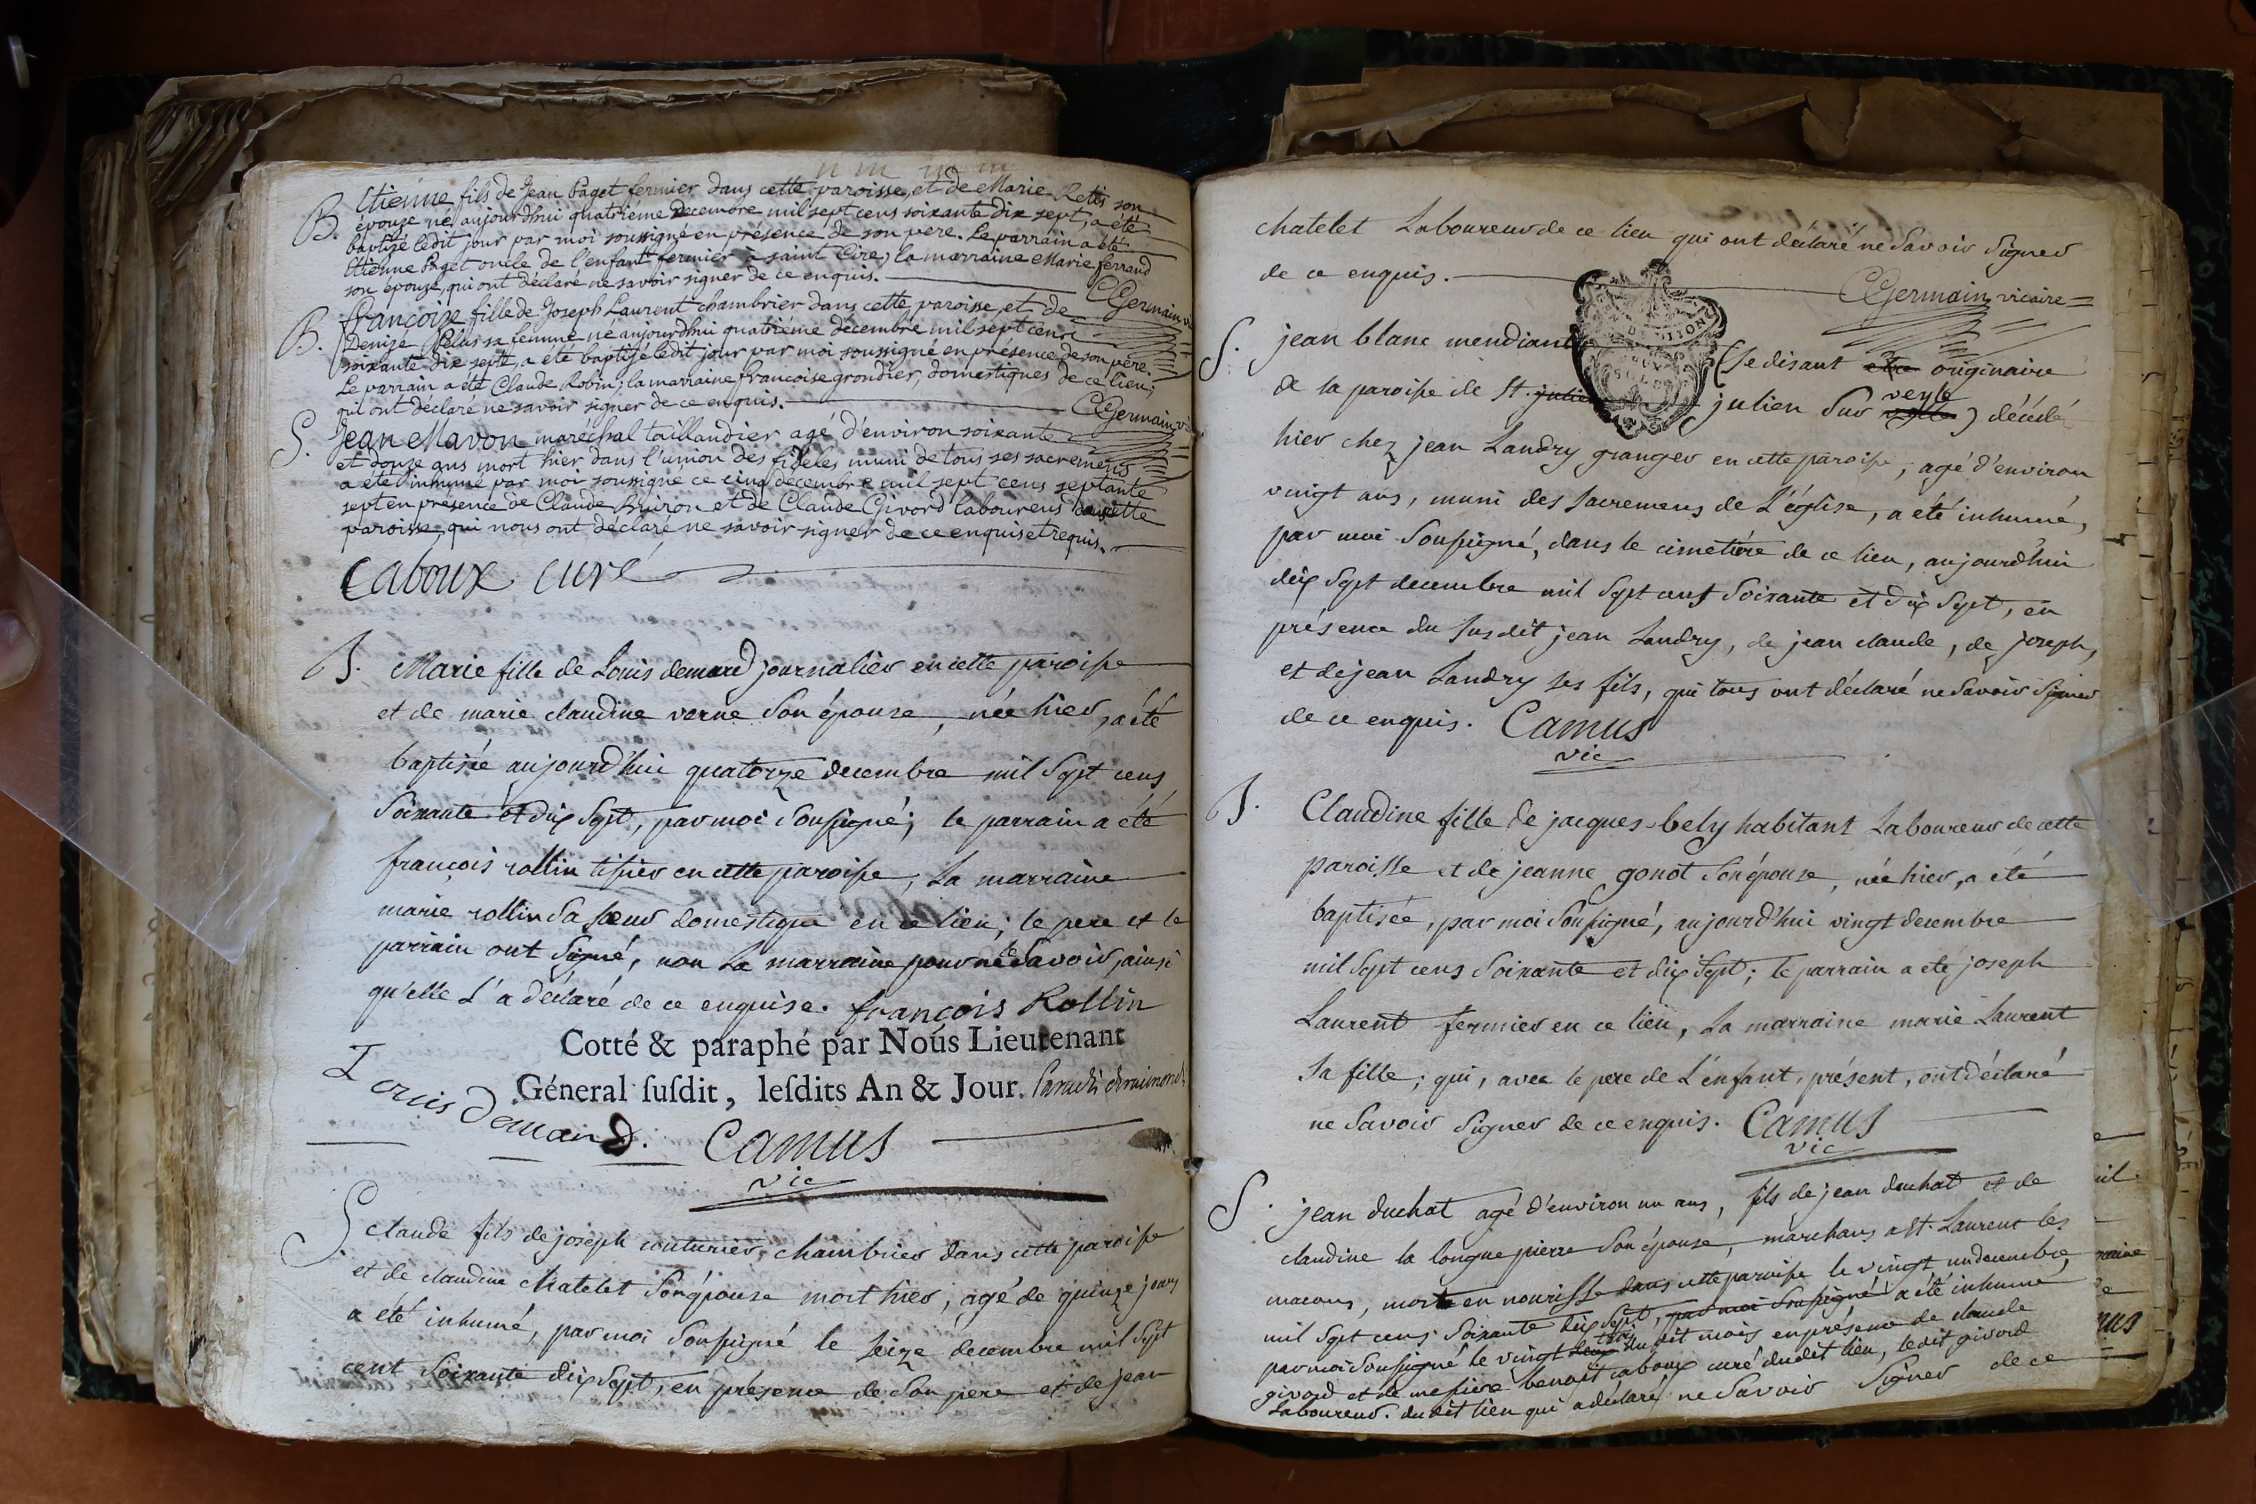 B. Etienne fils de Jean Paget fermier dans cette paroisse, et de Marie Retis son
épouze né aujourdhui quatriéme decembre mil sept cens soixante dix sept, a été
baptizé ledit jour par moi soussigné en présence de son pere. Le parrain a été
Etienne Paget oncle de l'enfant fermier à saint Cire, la marraine Marie ferrand
son epouze, qui ont déclaré ne savoir signer de ce enquis.
CGermain vic
B. françoize fille de Joseph Laurent chambrier dans cette paroisse et de
Denize Pelus sa femme né aujourdhui quatriéme décembre mil sept cens
soixante dix sept, a été baptizé ledit jour par moi soussigné en présence de son père.
Le parrain a été Claude Robin; la marraine francoise grondier, domestiques de ce lieu;
qui ont déclaré ne savoir signer de ce enquis.
CGermain vi
S. Jean Mavon maréchal taillandier agé d'environ soixante
et douze ans mort hier dans l'union des fideles muni de tous ses sacremens
a été inhumé par moi soussigné ce cinq décembre mil sept cens septante
sept en présence de Claude Buiron et de Claude Givord laboureus de cette
paroisse qui nous ont déclaré ne savoir signer de ce enquis et requis.
Caboux curé
B. Marie fille de Louis demard journalier en cette paroisse
et de marie claudine verne son épouse, née hier, a été
baptisée aujourd'hui quatorze decembre mil sept cens
soixante et dix sept, par moi soussigné; le parrain a été
françois rollin tissier en cette paroisse, la marraine
marie rollin sa sœur domestique en ce lieu; le pere et le
parrain ont signé, non la marraine pour ne le savoir, ainsi
qu'elle l'a déclaré de ce enquise. françois Rollin
Cotté & paraphé par Nous Lieutenant
Géneral susdit, lesdits An & Jour.
Louis Demard.
Camus
vic
S. claude fils de joseph couturier, chambrier dans cette paroisse
et de claudine chatelet son épouse mort hier, agé de quinze jours
a été inhumé, par moi soussigné le seize decembre mil sept
cent soixante dix sept, en présence de son pere et de jean
chatelet laboureur de ce lieu qui ont déclaré ne savoir signer
de ce enquis.
CGermain vicaire
S. jean blanc mendiant (se disant etre originaire
de la paroisse de St. julie julien sur veyle) décédé
hier chez jean Landry granger en cette paroisse, agé d'environ
vingt ans, muni des sacremens de l'église, a été inhumé,
par moi soussigné, dans le cimetiére de ce lieu, aujourd'hui
dix sept decembre mil sept cens soixante et dix sept, en
présence du susdit jean Landry, de jean claude, de joseph,
et de jean Landry ses fils, qui tous ont déclaré ne savoir signer
de ce enquis. Camus
vic
B. Claudine fille de jacques bely habitant laboureur de cette
paroisse et de jeanne gonot son épouse, née hier, a été
baptisée, par moi soussigné, aujourd'hui vingt decembre
mil sept cens soixante et dix sept; le parrain a été joseph
Laurent fermier en ce lieu, la marraine marie Laurent
sa fille; qui, avec le pere de l'enfant, présent, ont déclaré
ne savoir signer de ce enquis. Camus
vic
S. jean duchat agé d'environ un ans, fils de jean duchat et de
claudine la longue pierre son épouse, marchans a St. Laurent les
macons, mort en nourisse dans cette paroisse le vingt un decembre
mil sept cens soixante dix sept, par moi soussigné a été inhumé
par moi soussigné le vingt deux trois dudit mois en présence de claude
givord et de messire benoit caboux curé dudit lieu, ledit givord
laboureur. dudit lieu qui a déclaré ne savoir signer de ce